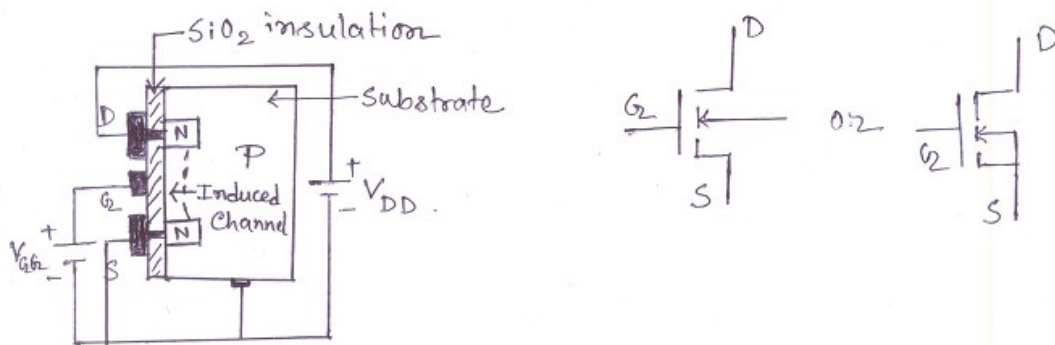 SiO2 insulation
Substrate
D
N
P
Induced
Channel
G
N
S
+
VGG
-
+
VDD.
-
D
G
S
or
D
G
S